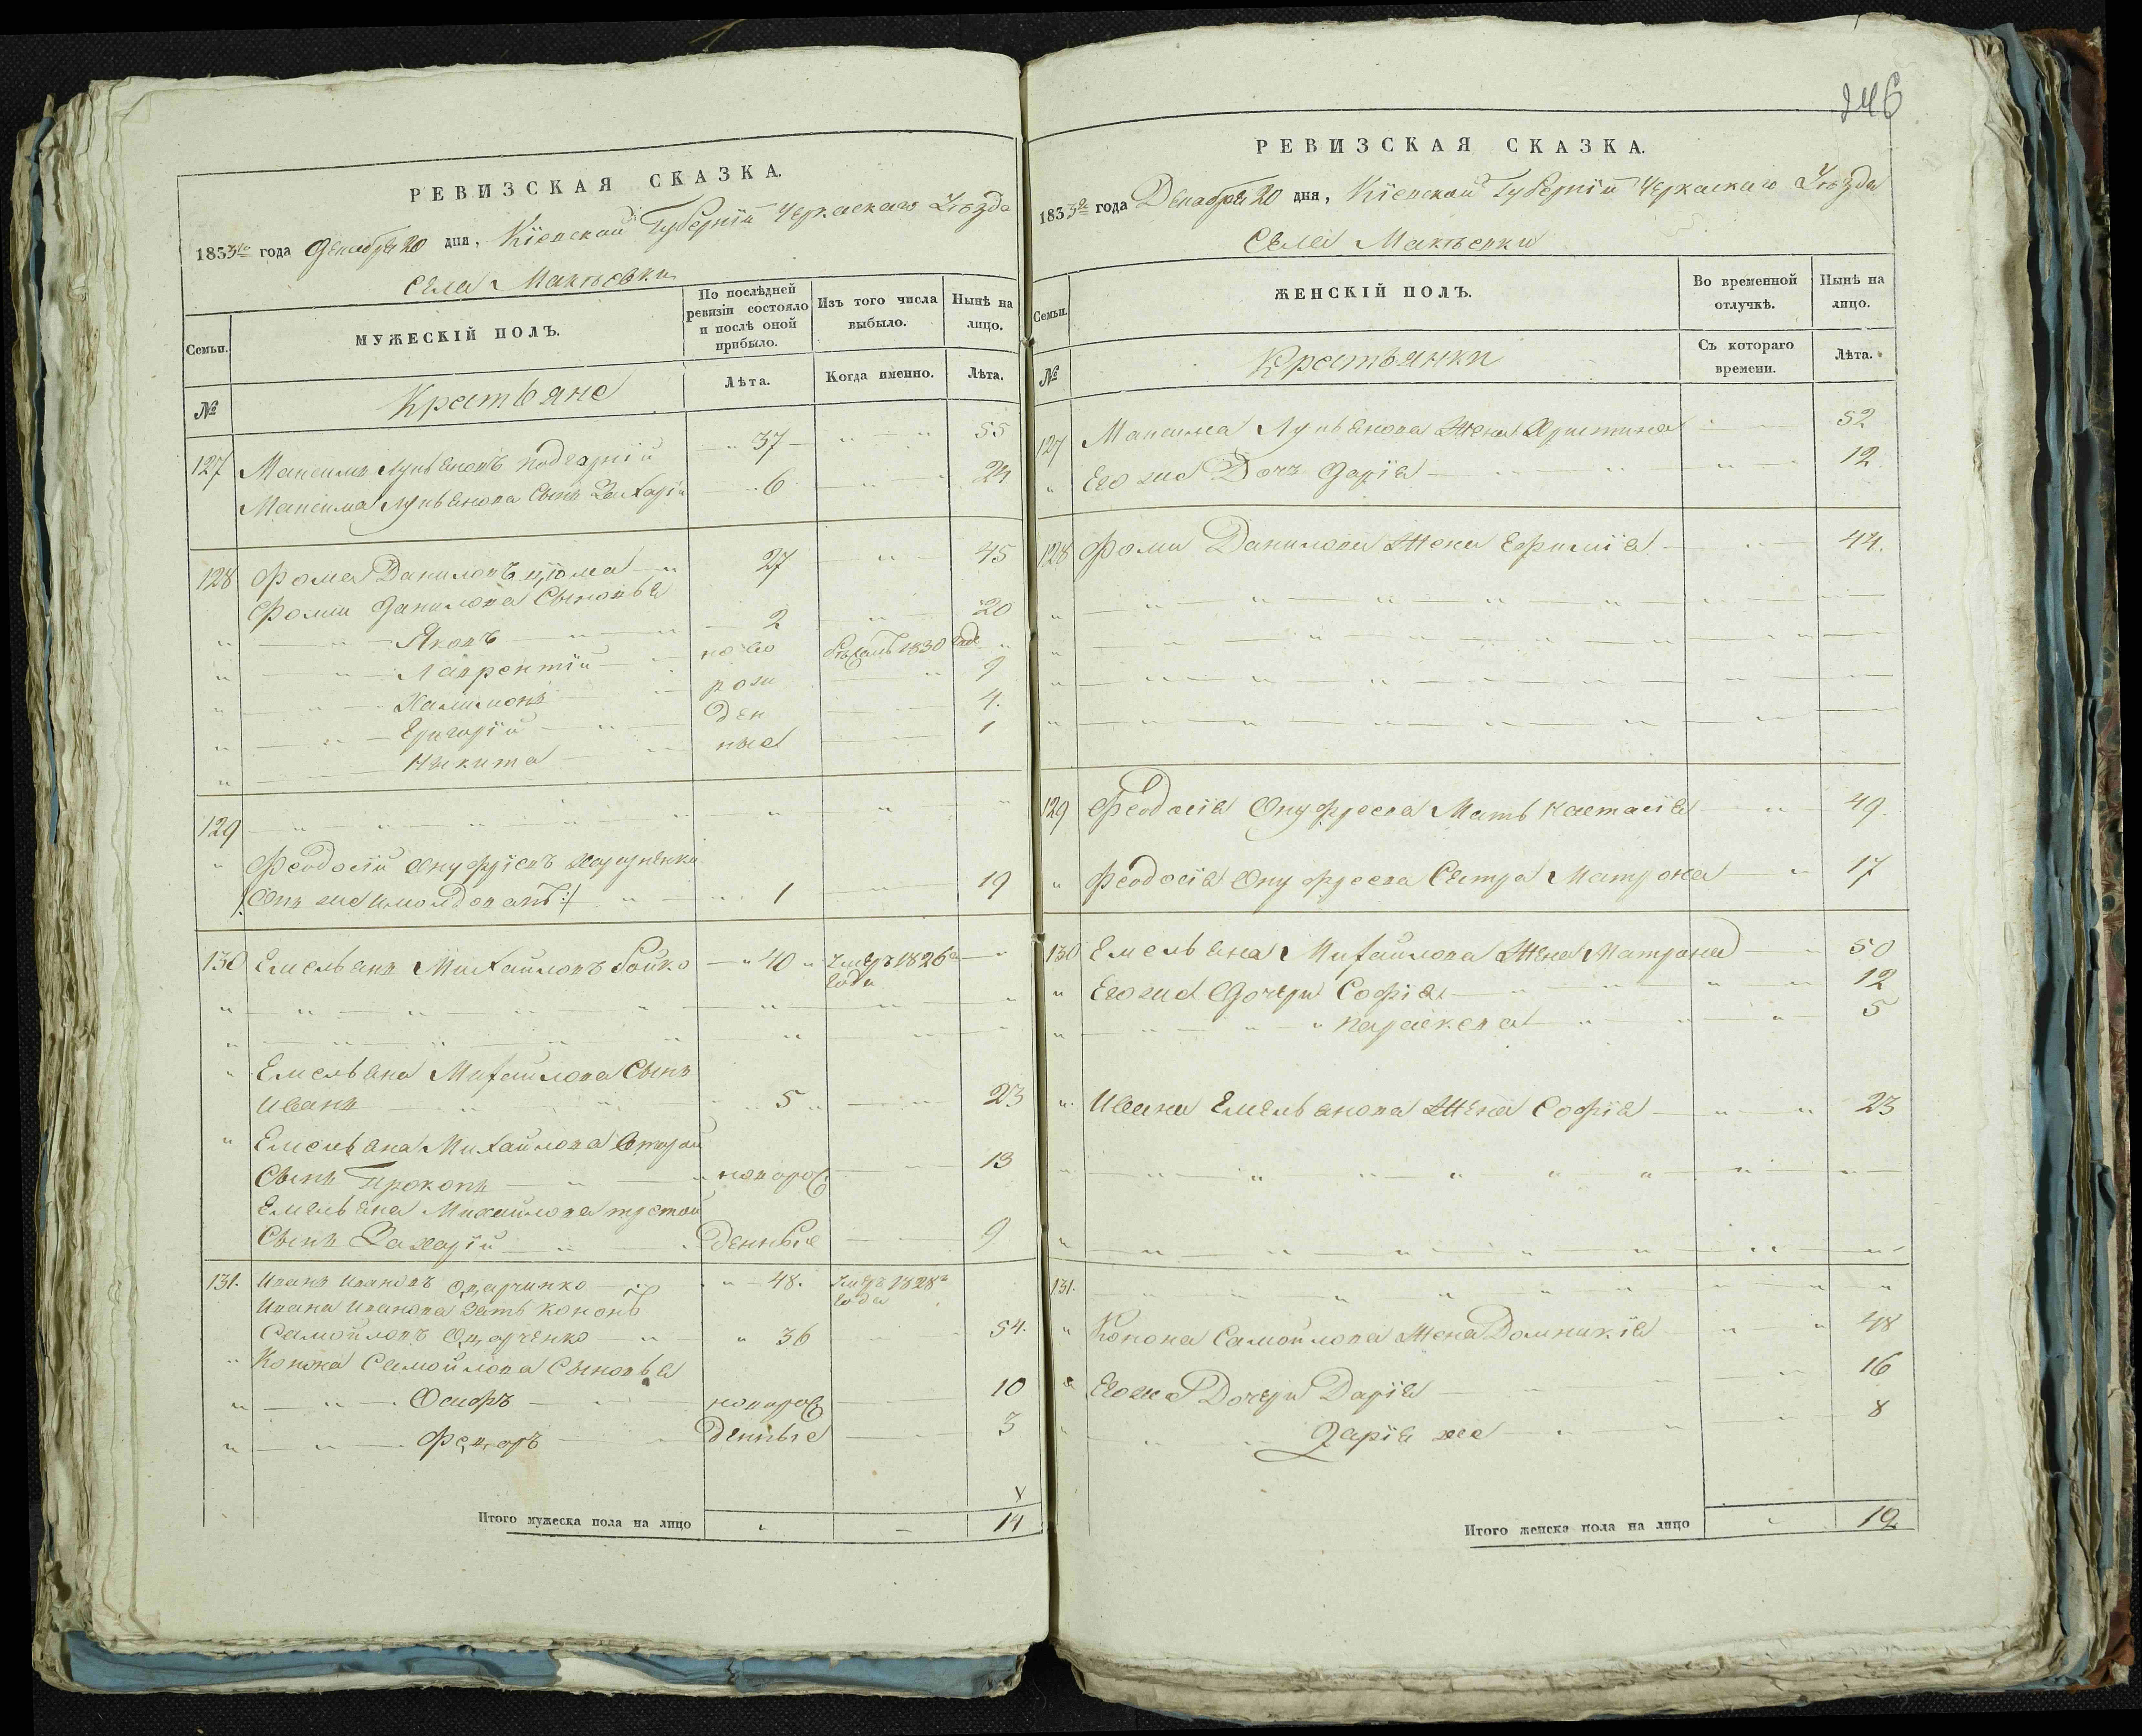 РЕВИЗСКАЯ СКАЗКА.
1833го года Декабря 20 дня, Кіевской Губерніи Черкаскаго Уѣзда
Села Макѣевки
Семьи.
МУЖЕСКІЙ ПОЛЪ.
По послѣдней ревизіи состояло и послѣ оной прибыло.
Изъ того числа выбыло.
Нынѣ на лицо.
№
Крестьяне
Лѣта.
Когда именно.
Лѣта.
127 Максимъ Лукьяновъ 37 55
Максима Лукьянова Сынъ Захарій 6 24
128 Фома Даниловъ 27 45
Фомы Данилова Сыновья
Яковъ 2 20
Лаврентій ново 1830 года
Калимонъ рож 9
Григорій ден 4.
Никита ные 1
129
Феодосій Онуфріевъ
1 19
130 Емельянъ Михайловъ Бойко 40 умеръ 1826 года
Емельяна Михайлова Сынъ
Иванъ 5 23
Емельяна Михайлова второй
Сынъ Прокопъ новорож 13
Емельяна Михайлова третой
Сынъ Захарій денные 9
131. Иванъ Ивановъ 48. умеръ 1828 года
Ивана Иванова Зять Кононъ
Самойловъ 36 54.
Конона Самойлова Сыновья
Осифъ новорож 10
Федоръ денные 3
Итого мужеска пола на лицо 14
246
РЕВИЗСКАЯ СКАЗКА.
1833го года Декабря 20 дня, Кіевской Губерніи Черкаскаго Уѣзда
Села Макѣевки
Семьи.
ЖЕНСКІЙ ПОЛЪ.
Во временной отлучкѣ.
Нынѣ на лицо.
№
Крестьянки
Съ котораго времени.
Лѣта.
127 Максима Лукьянова Жена Христина 52
Его же Дочь Дарія 12.
128 Фомы Данилова Жена Ефимія 44.
129 Феодосія Онуфреева Мать Настасія 49.
Феодосія Онуфреева Сестра Матрона 17
130 Емельяна Михайлова Жена Матрона 50
Его же Дочери Софія 12
Параскева 5
Ивана Емельянова Жена Софія 23
131.
Конона Самойлова Жена Домникія 48
Его же Дочери Дарія 16
Дарія же 8
Итого женска пола на лицо 12